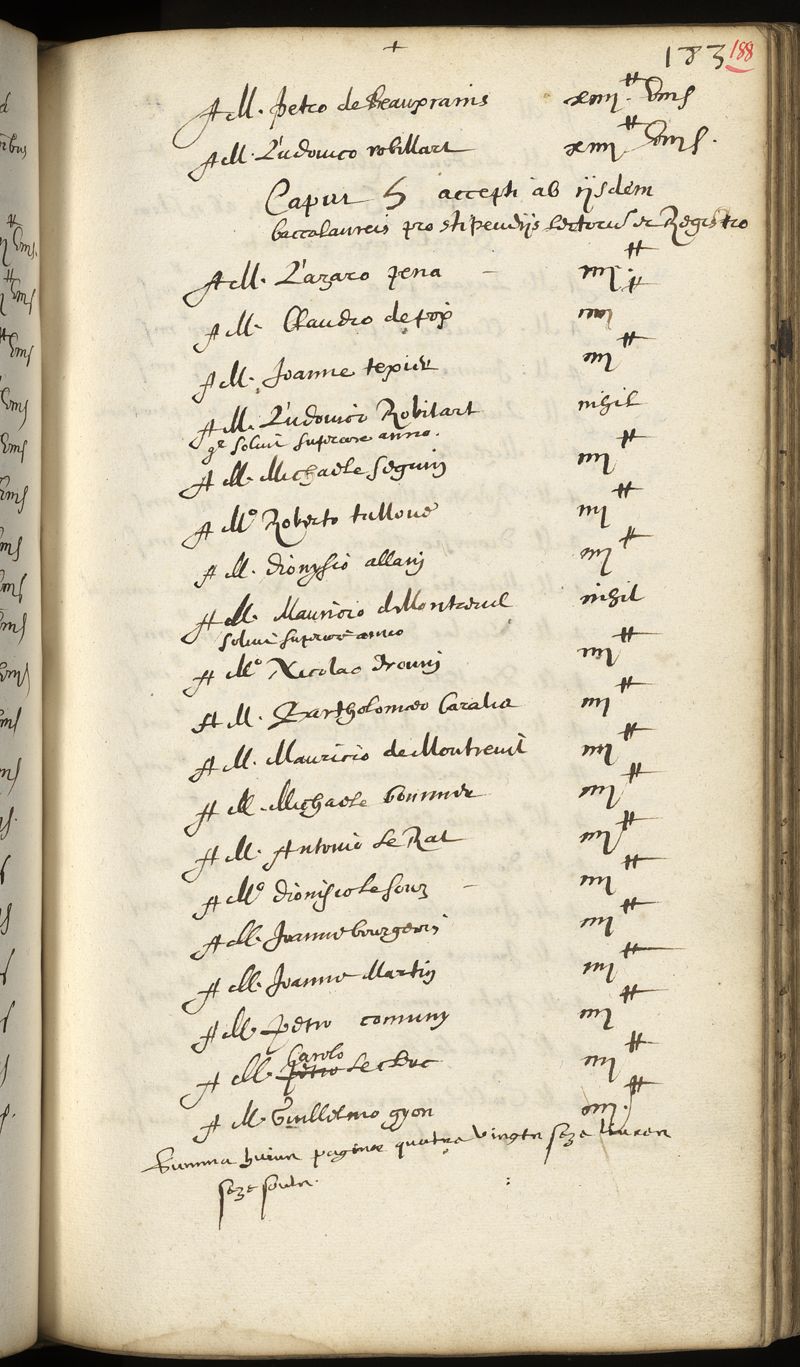 +
183 188
A M. petro de Beauxrains xiiij ₶ viij s
A M. Ludovico robillart xiiij ₶ viij s.
Caput 5 accepti ab ijsdem
baccalaureis pro stipendijs Lectoris et Registro
A M. Lazaro pena – iiij ₶
A M. Claudio de foix iiij ₶
A M. Joanne texier iiij ₶
A M. Ludovico Robilart nihil
solvit superiore anno.
A M. Michaele Seguin iiij ₶
A Mo Roberto tulloue iiij ₶
A M. dionysio allain iiij ₶
A M. Mauricio de Montreuil nihil
solvit superiore anno
A Mo Nicolao drouin iiij ₶
A M. Bartholomæo Caralia iiij ₶
A M. Mauricio de Montreuil iiij ₶
A M. Michaele bonnier iiij ₶
A M. Antonio Le Rat iiij ₶
A Mo dionisio le souz – iiij ₶
A M. Joanne bourgeois iiij ₶
A M. Joanne Martin iiij ₶
A M. petro comuny iiij ₶
Carolo
A M. petro Leclerc iiij ₶
A M. Guillelmo gyon iiij ₶
Summa huius paginæ quatre vingts seze livres
seze soulz.